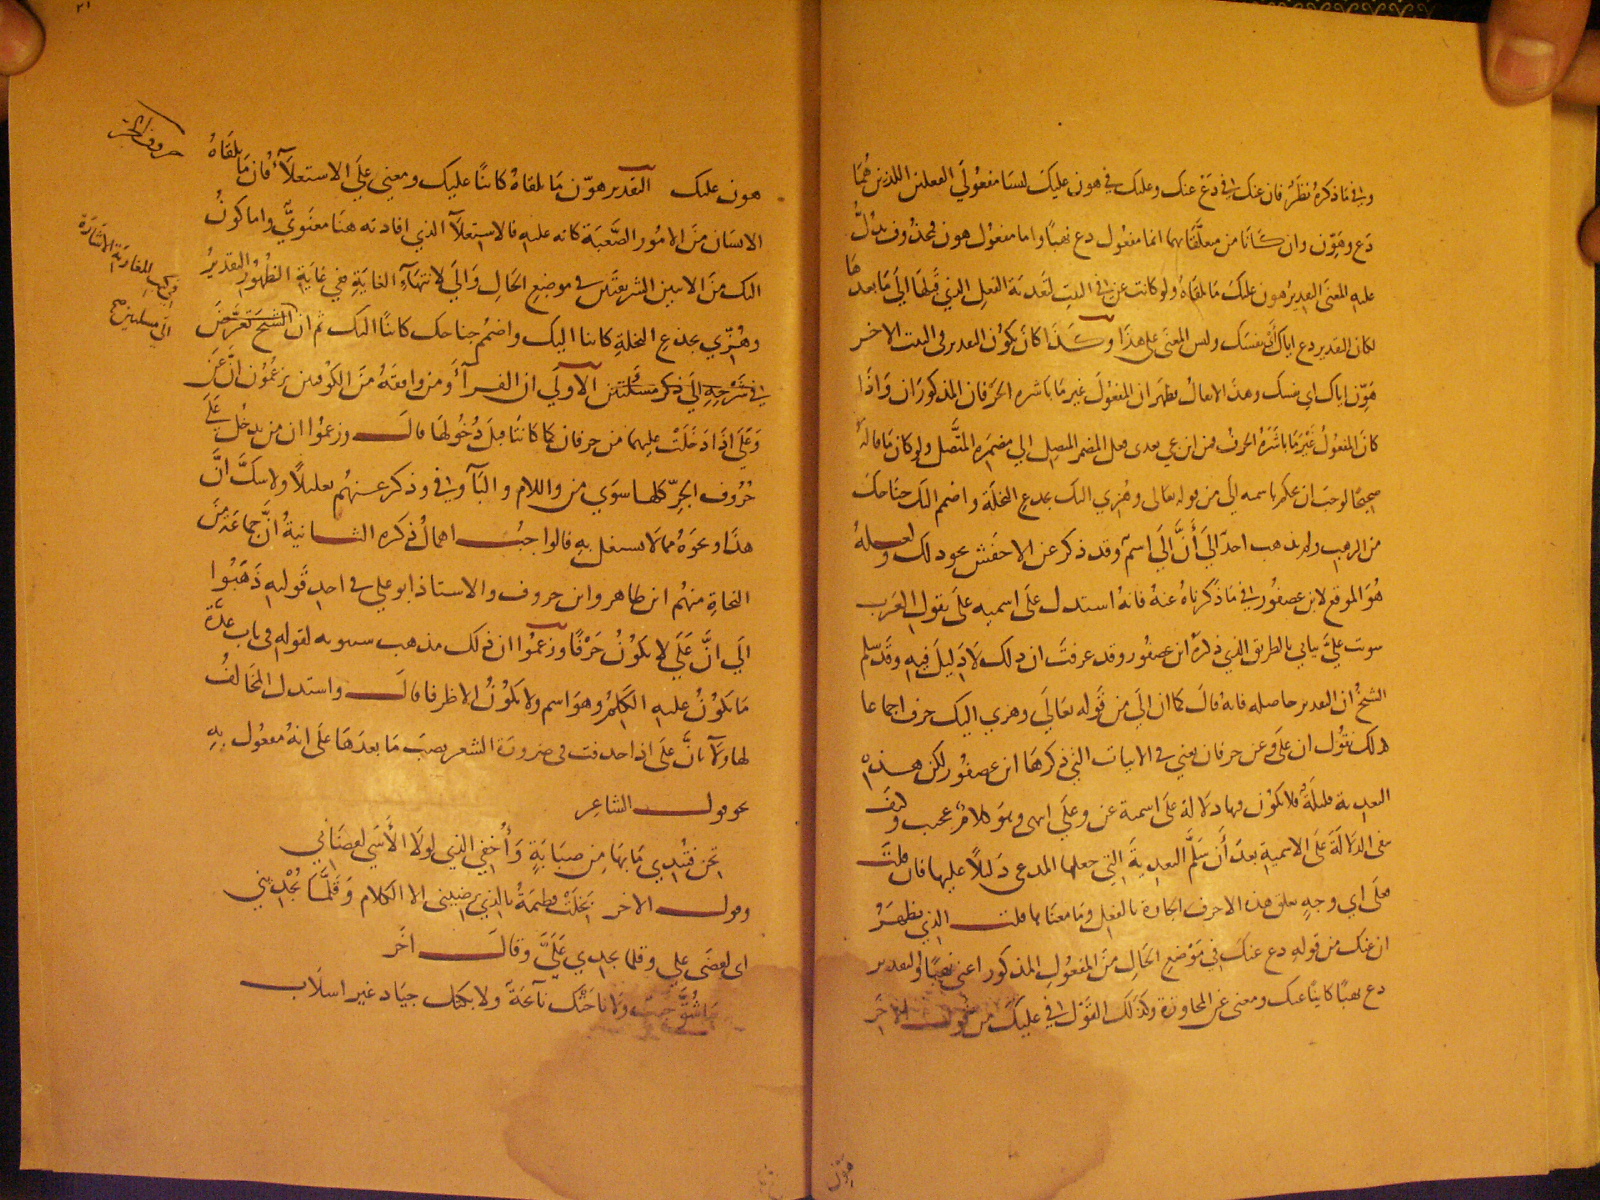 وفي ما ذكره نظر فان عنك في دع عنك وعليك في هون عليك ليسا مفعولي الفعلين اللذين هما
دع وهون وان كانا من متعلقاتهما انما مفعول دع نهبا واما مفعول هون فمحذوف يدل
عليه المعنى التقدير هون عليك ما تلقاه ولو كانت عن في البيت لتعدية الفعل الذي قبلها الى ما بعدها
لكان التقدير دع اياك اي نفسك وليس المعنى على هذا وكذا كان يكون التقدير في البيت الاخر
هون اياك اي نفسك وهذا الانفعال يظهر ان المفعول غير ما باشره الحرفان المذكوران واذا
كان المفعول غير ما باشره الحرف فمن اين يدعي تعدى فعل المضمر المتصل الى مضمره المتصل ولو كان ما قاله
صحيحا لوجب ان يحكم باسمية الى من قوله تعالى وهزي اليك بجذع النخلة واضمم اليك جناحك
من الرهب ولم يذهب احد الى أن الى اسم وقد ذكر عن الاخفش نحو ذلك ولعله
هو الموقع لابن عصفور في ما ذكرناه عنه فانه استدل على اسمية على بقول العرب
سويت علي ثيابي بالطريق الذي ذكره ابن عصفور وقد عرفت ان ذلك لا دليل فيه وقد سلم
الشيخ ان التقدير حاصله فانه قال كما ان الى من قوله تعالى وهزي اليك حرف اجماعا
كذلك نقول ان على وعن حرفان يعني في الابيات التي ذكرها ابن عصفور لكن هذه
التعدية قليلة فلا يكون فيها دلالة على اسمية عن وعلى انتهى وهو كلام عجيب وكيف
ينفي الدلالة على الاسمية بعد أن سلم التعدية التي جعلها المدعى دليلا عليها فان قلت
فعلى اي وجه تعلق هذه الاحرف الجارة بالفعل وما معناها قلت الذي يظهر
ان عنك من قوله دع عنك في موضع الحال من المفعول المذكور اعني نهبا والتقدير
دع نهبا كاينا عنك ومعنى عن المجاوزة وكذلك القول في عليك من قول الاخر
هون
هون عليك التقدير هون ما تلقاه كائنا عليك ومعنى على الاستعلاء فان ما يلقاه
الانسان من الامور الصعبة كانه عليه فالاستعلاء الذي افادته هنا معنوي واما كون
اليك من الآيتين الشريفتين في موضع الحال والى لانتهاء الغاية ففي غاية الظهور التقدير
وهزي بجذع النخلة كائنا اليك واضمم جناحك كائنا اليك ثم ان الشيخ تعرض
في شرحه الى ذكر مسئلتين الاولى ان الفراء ومن وافقه من الكوفيين يزعمون ان عن
وعلى اذا دخلت عليهما من حرفان كما كانتا قبل دخولها قال وزعموا ان من يدخل على
حروف الجر كلها سوى من واللام والباء وفي وذكر عنهم تعليلا ولا شك ان
هذا ونحوه مما لا يشتغل به قالوا جب اهمال ذكره الثانية ان جماعة من
النحاة منهم ابن طاهر وابن خروف والاستاذ ابو علي في احد قوليه ذهبوا
الى ان على لا يكون حرفا وزعموا ان ذلك مذهب سيبويه لقوله في باب عدة
ما يكون عليه الكلم وهو اسم ولا يكون الا ظرفا قال واستدل المخالف
لهاولاء بان على اذا حذفت في ضرورة الشعر نصب ما بعدها على انه مفعول به
نحو قول الشاعر
تحن فتبدي ما بها من صبابة وأخفي الذي لولا الأسى لقضاني
وقول الاخر بخلت فطيمة بالذي يرضيني الا الكلام وقلما يجديني
اى لقضى علي وقلما يجدي علي وقال اخر
ما شق جيب ولا ناحتك نائحة ولا بكتك جياد غير اسلاب
ابن خروف
الى مسئلتين صح